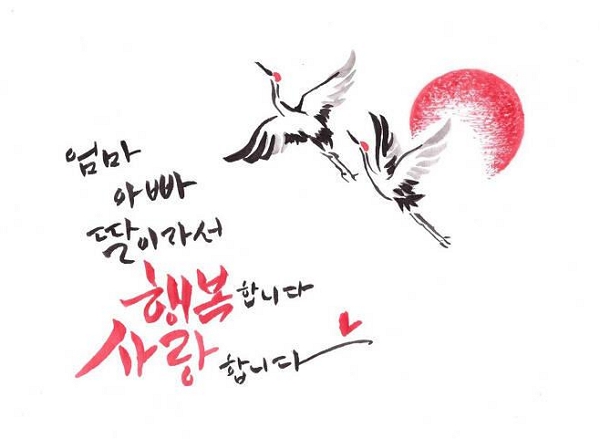 엄마
아빠
딸이라서
행복합니다
사랑합니다